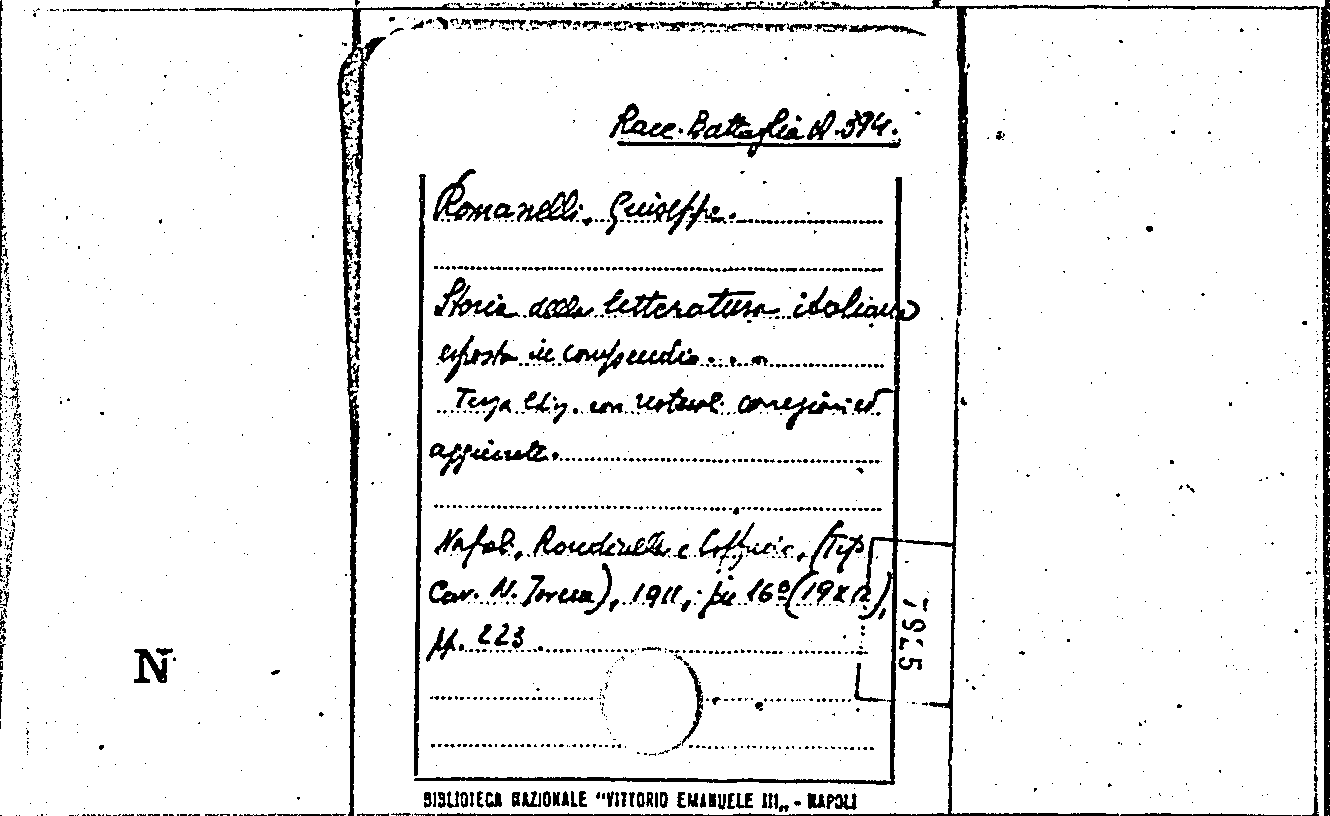 Racc. Battaglia A. 394.
Romanelli, Giuseppe.
Storia della letteratura italiana
esposta in compendio...
Terza Ediz. con notevoli correzioni ed
aggiunte.
Napoli, Rondinella e Loffredo, (Tip.
Cav. N. Jovene), 1911, in 16º (19x12),
pp. 223.
7925
N
BIBLIOTECA NAZIONALE "VITTORIO EMANUELE III„ - NAPOLI